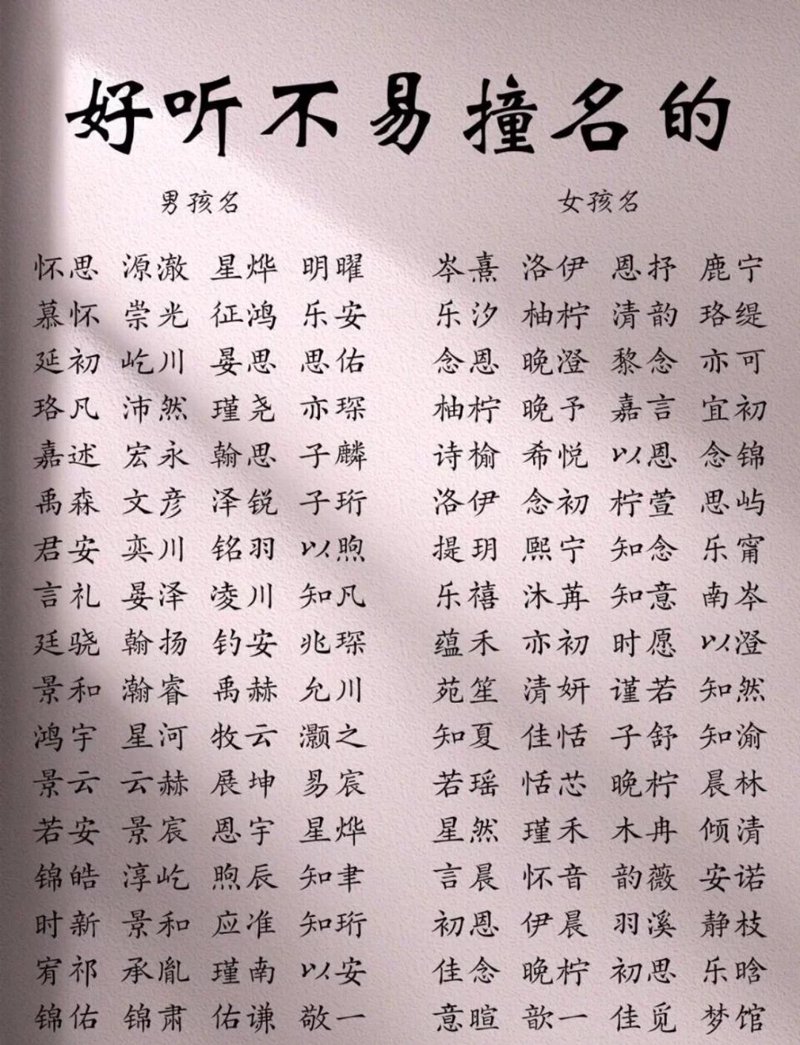 好听不易撞名的
男孩名 女孩名
怀思 源澈 星烨 明曜 岑熹 洛伊 恩抒 鹿宁
慕怀 崇光 征鸿 乐安 乐汐 柚柠 清韵 珞缇
延初 屹川 晏思 思佑 念恩 晚澄 黎念 亦可
珞凡 沛然 瑾尧 亦琛 柚柠 晚予 嘉言 宜初
嘉述 宏永 翰思 子麟 诗榆 希悦 以恩 念锦
禹森 文彦 泽锐 子珩 洛伊 念初 柠萱 思屿
君安 奕川 铭羽 以煦 提玥 熙宁 知念 乐甯
言礼 晏泽 凌川 知凡 乐禧 沐苒 知意 南岑
廷骁 翰扬 钓安 兆琛 蕴禾 亦初 时愿 以澄
景和 瀚睿 禹赫 允川 苑笙 清妍 谨若 知然
鸿宇 星河 牧云 灏之 知夏 佳恬 子舒 知渝
景云 云赫 展坤 易宸 若瑶 恬芯 晚柠 晨林
若安 景宸 恩宇 星烨 星然 瑾禾 木冉 倾清
锦皓 淳屹 煦辰 知聿 言晨 怀音 韵薇 安诺
时新 景和 应准 知珩 初恩 伊晨 羽溪 静枝
宥祁 承胤 瑾南 以安 佳念 晚柠 初思 乐晗
锦佑 锦肃 佑谦 敬一 意暄 歆一 佳觅 梦馆